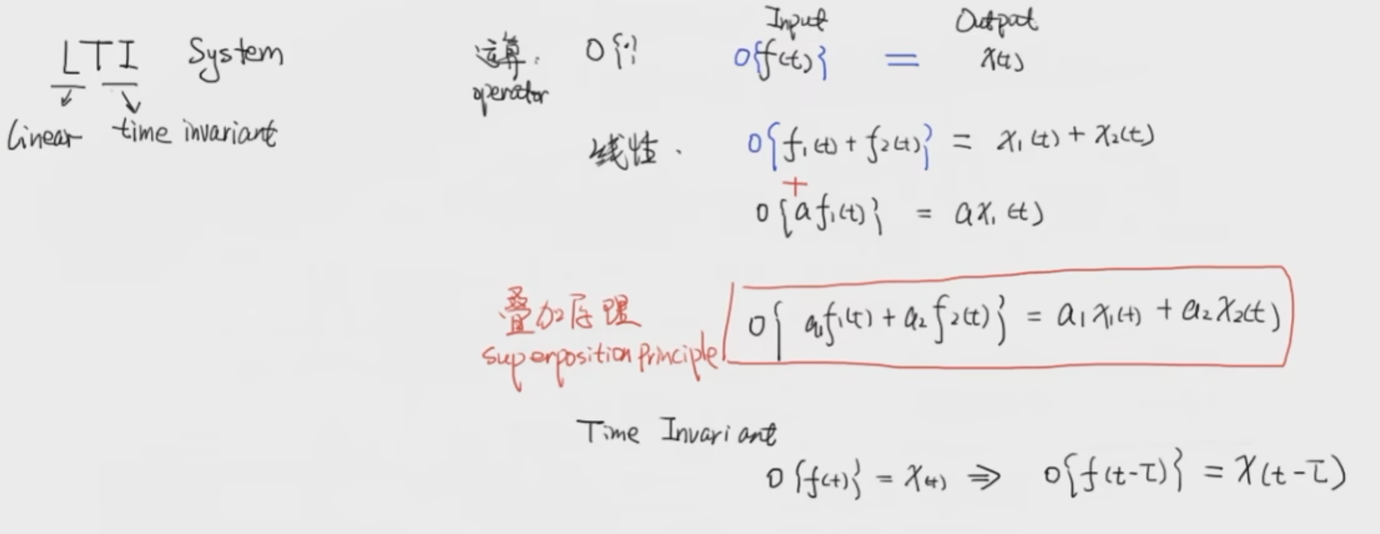 LTI System
linear time invariant
运算: O{·}
operator
Input Output
O{f(t)} = x(t)
线性. O{f₁(t) + f₂(t)} = x₁(t) + x₂(t)
+
O{af₁(t)} = ax₁(t)
叠加原理
superposition principle
O{a₁f₁(t) + a₂f₂(t)} = a₁x₁(t) + a₂x₂(t)
Time Invariant
O{f(t)} = x(t) ⇒ O{f(t-τ)} = x(t-τ)